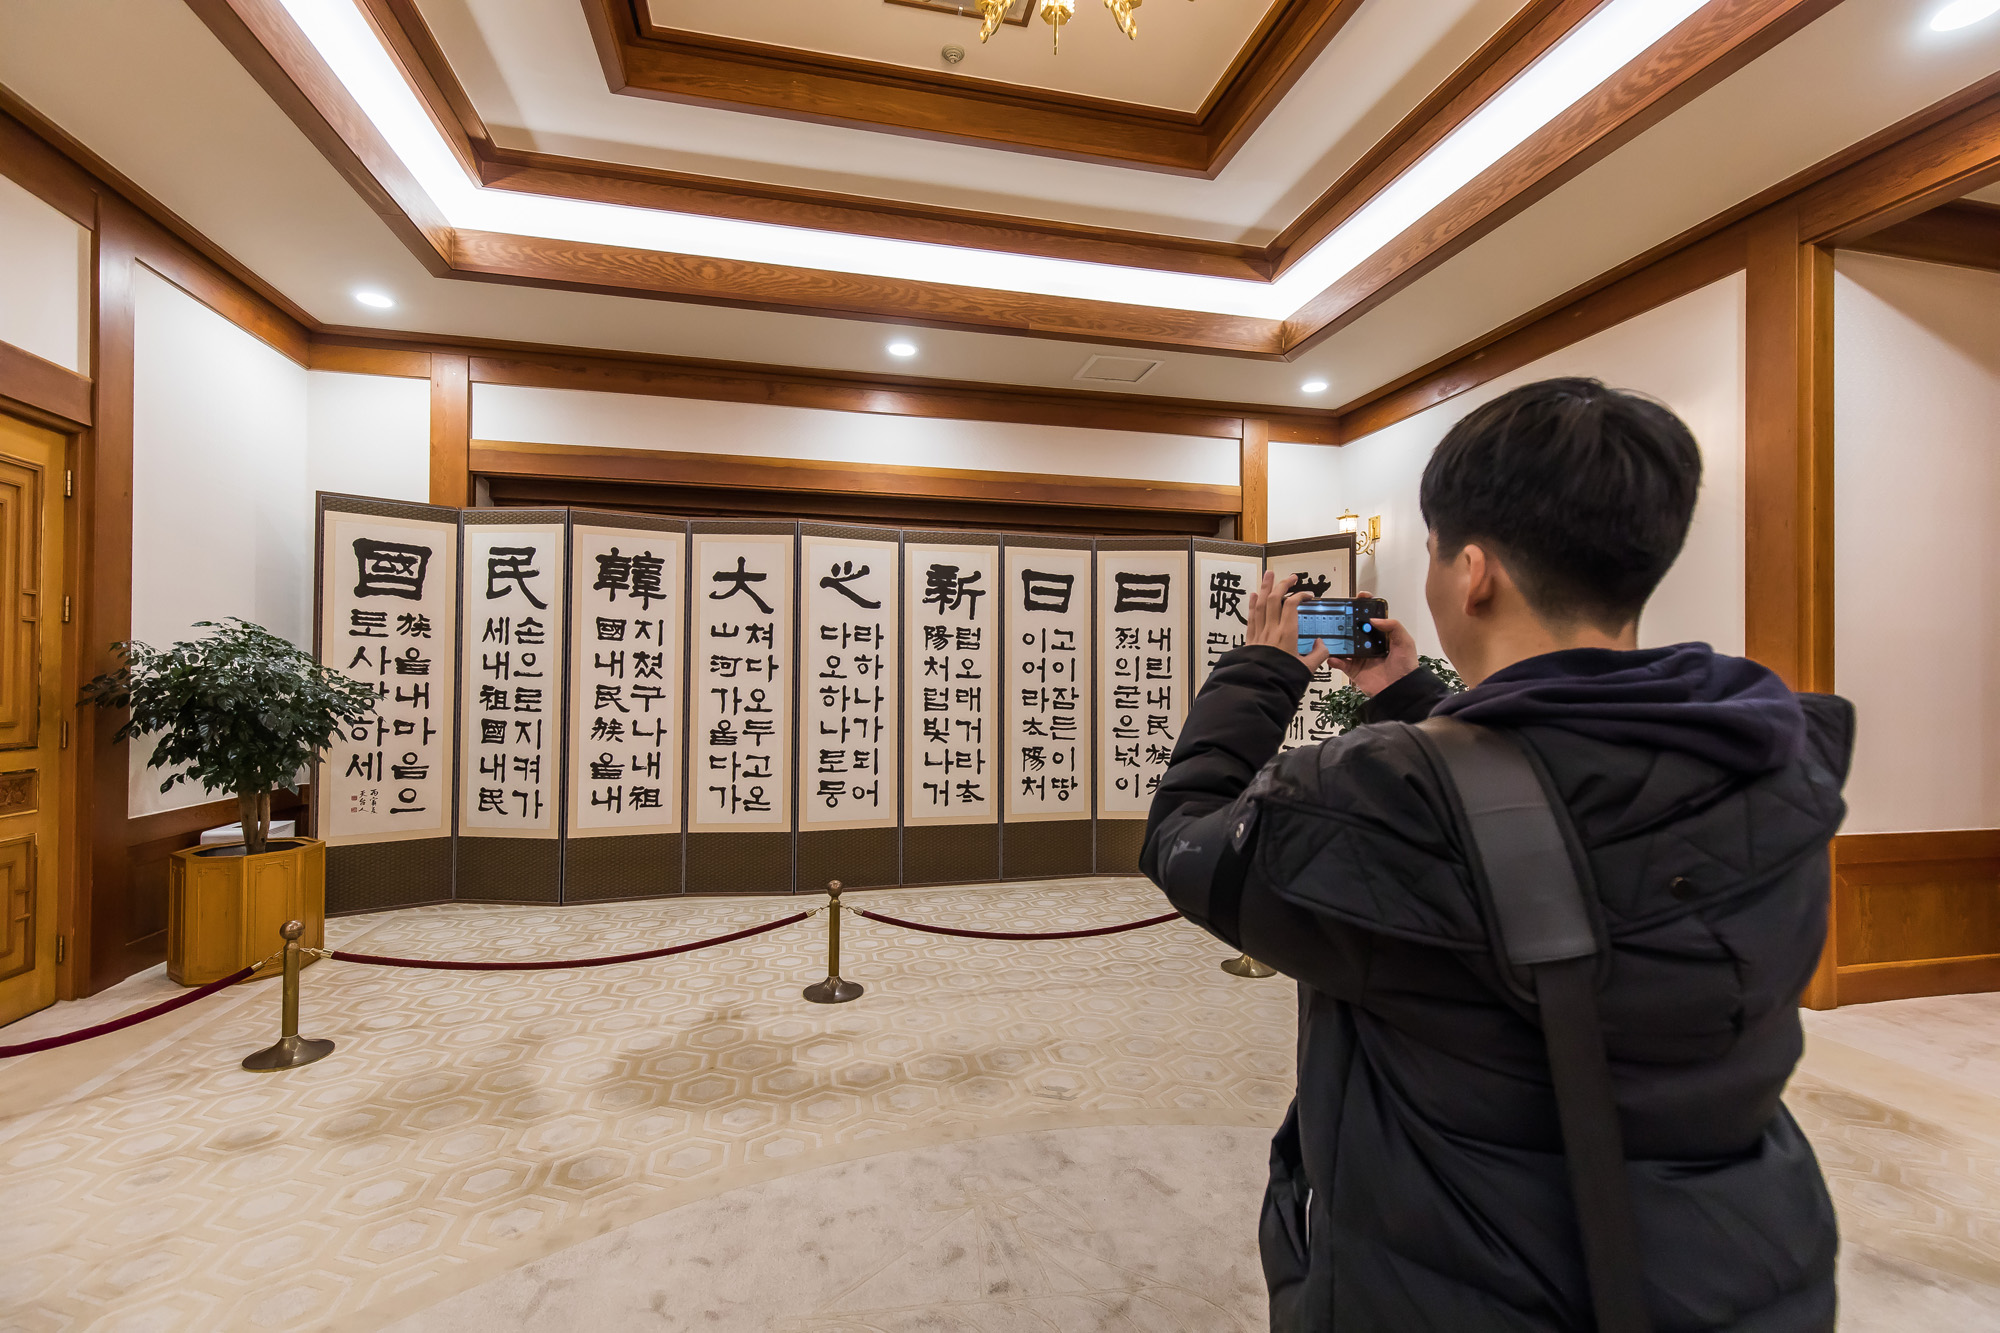 曰
내린내民族先
烈의굳은넋이
日
고이잠든이땅
이어라太陽처
新
럼오래거라太
陽처럼빛나거
之
라하나가되어
다오하나로뭉
大
쳐다오두고온
山河가울다가
韓
지쳤구나내祖
國내民族을내
民
손으로지켜가
세내祖國내民
國
族을내마음으
로사랑하세